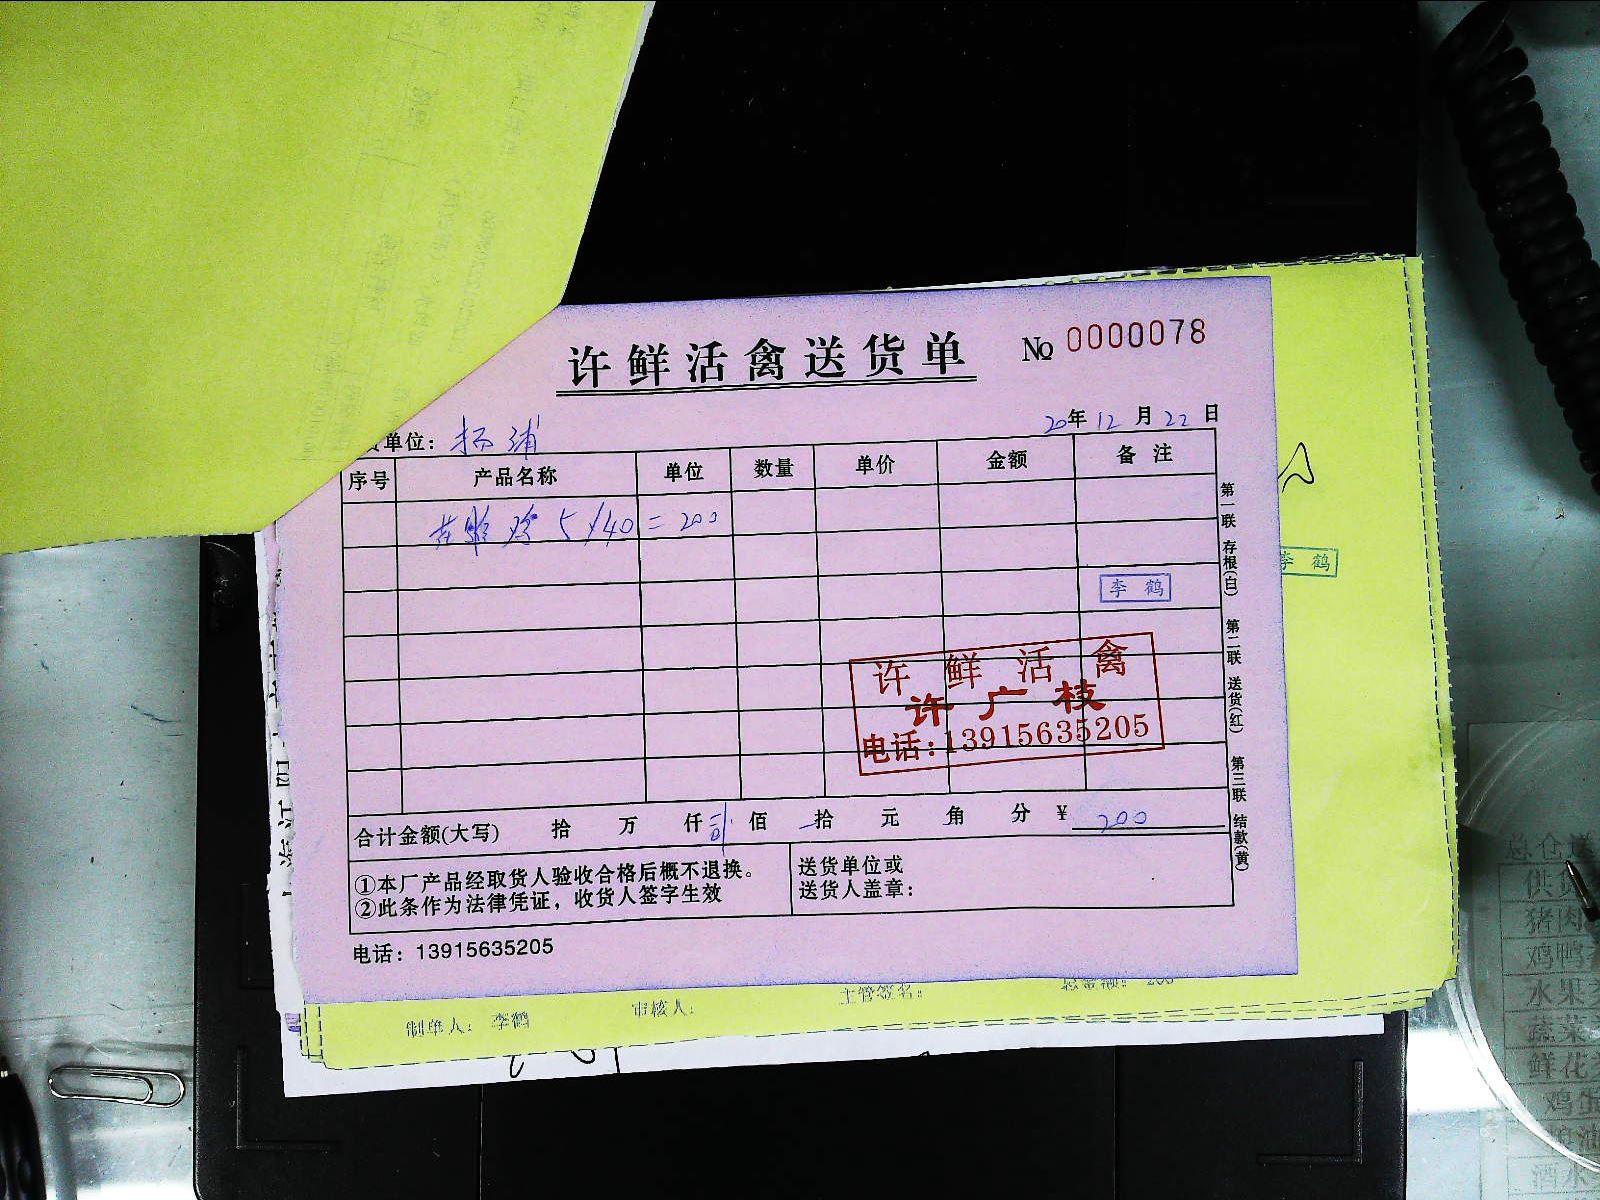 许鲜活禽送货单 № 0000078
单位：杨浦 20年12月22日
序号 产品名称 单位 数量 单价 金额 备注
5/40=200
李鹤
许鲜活禽
许广枝
电话：13915635205
合计金额(大写) 拾 万 仟 贰 佰 拾 元 角 分 ¥ 200
①本厂产品经取货人验收合格后概不退换。
②此条作为法律凭证，收货人签字生效
送货单位或
送货人盖章：
电话：13915635205
第一联 存根(白) 第二联 送货(红) 第三联 结款(黄)
李鹤
制单人：李鹤 审核人： 主管签名： 总金额：200
供货
猪肉
鸡鸭
水果
蔬菜
鲜花
鸡蛋
酒水